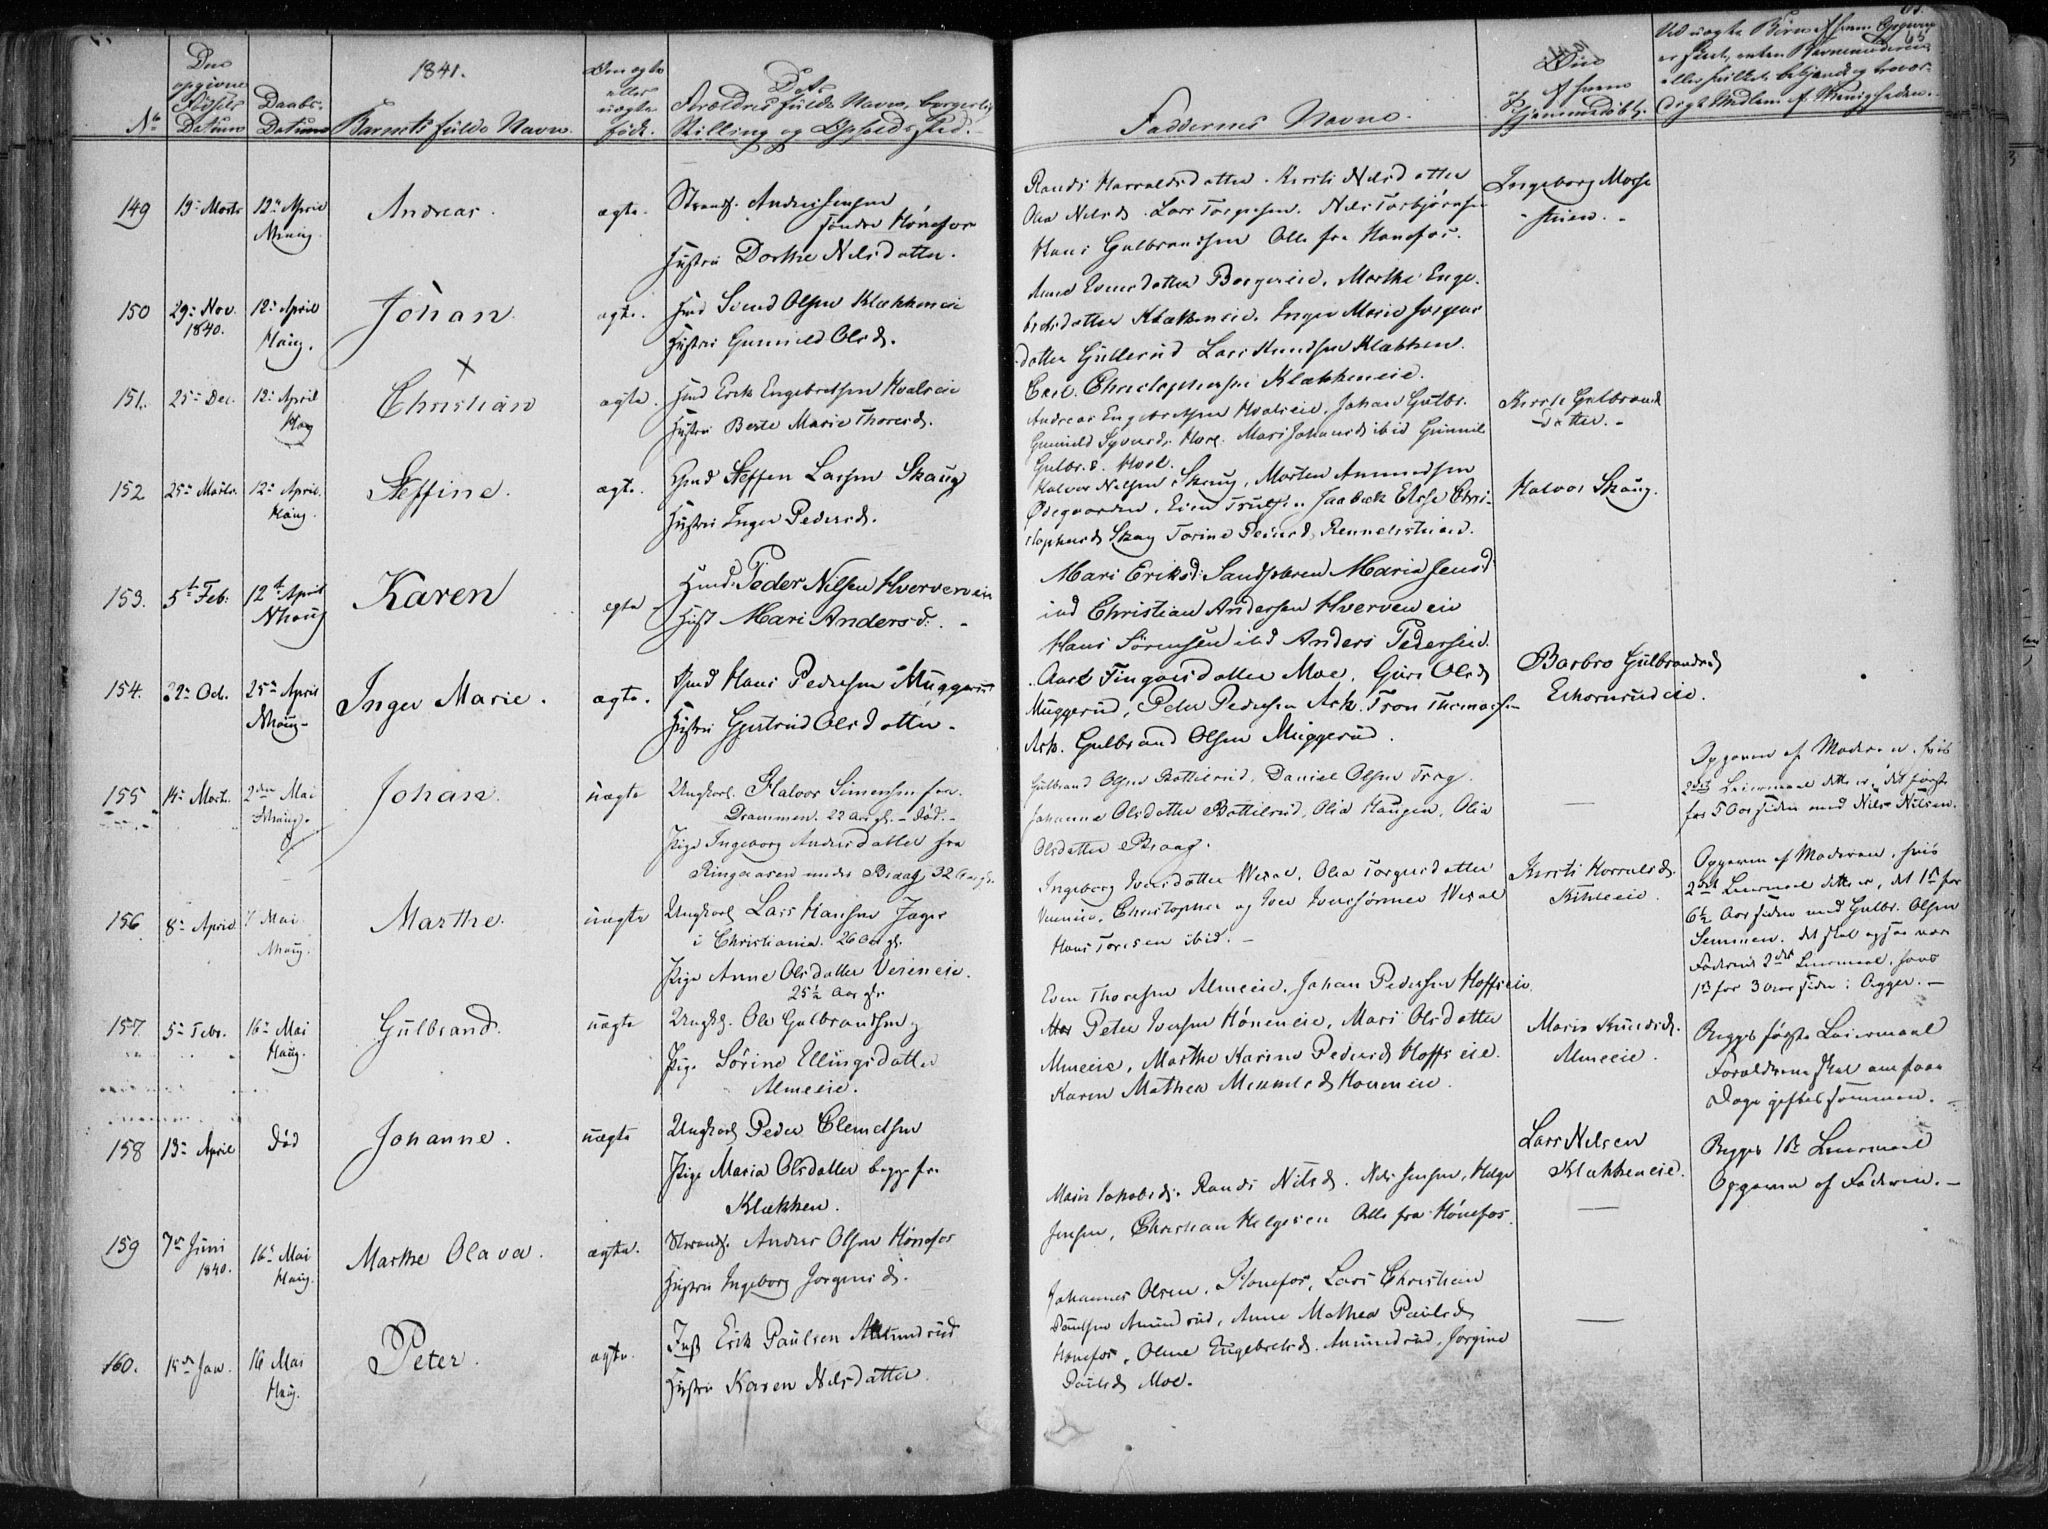 1841.
No
Den opgivne Fødsels Datum
Daabs-Datum
Barnets fulde Navn.
Om ægte eller uægte født.
Forældres fulde Navn, borgerlig Stilling og Opholdssted.
Faddernes Navne.
65
149
13de Marts
12te April
Nhaug.
Andreas.
ægte.
Strands. Anders Jensen
søndre Hønefos
Hustru Dorthe Nilsdatter.
Randi Harraldsdatter. Kirsti Nilsdatter
Olia Nilsd. Lars Torgersen. Nils Torbjørnsen
Hans Gulbrandsen Alle fra Hønefos.
Ingeborg Mosse
stuen.
150
29. Nov.
1840.
12. April
Haug.
Johan
ægte.
Hmd Svend Olsen Klækkeneie
Hustru Gunnild Olsd.
Anne Iversdatter Borgereie, Marthe Enge-
bretsdatter Klækkeneie. Inger Marie Jørgens
datter Gullerud Lars Knudsen Klækken.
Carl Christophersen Klækkeneie.
151.
25. Dec.
12. April
Haug
Christian
ægte.
Hmd Erik Engebretsen Hvalseie
Hustru Berte Marie Thoresd.
Andreas Engebretsen Hvalseie. Johan Gulbr.
Gulbr.d. Hval.
Kirsti Gulbrands
datter.
152
25. Marts.
12. April.
Haug.
Steffine.
ægte.
Gmd Steffen Larsen Skaug
Hustru Inger Pedersd.
Halvor Nilsen Skaug, Morten Amundsen
Ødegaarden, Even
Else Chri-
stophersd. Skaug
Halvor Skaug.
153.
5t Feb:
12t April
Nhaug
Karen
egte
Hmd: Peder Nilsen Hverveneie
Hust Mari Andersd:
Mari Eriksd: Maria Jensd
ibd Christian Andersen Hverveneie
Hans Sørensen ibd Anders Pedersen.
154.
22. Oct.
25. April
Nhaug
Inger Marie.
ægte.
Gmd Hans Pedersen Muggerud
Hustru Gjertrud Olsdatter.
Aase Fingarsdatter Moe, Guri Olsd
Muggerud, Peter Pedersen Ask. Tron Thomassen
Ask. Gulbrand Olsen Muggerud.
Barbro Gulbrandsd
Ekornrudeie.
155
14. Marts.
2den Mai
Nhaug.
Johan.
uægte
Ungkarl Halvor Simensen fra
Drammen. 22 Aar gl. - død. -
Pige Ingeborg Andersdatter fra
Ringeraasen under Braag, 32 Aar gl.
Gulbrand Olsen Bottilrud, Daniel Olsen Trøg.
Johanne Olsdatter Bottilrud, Olia Haugen, Olia
Olsdatter Braag.
Opgaven af Moderen, hvis
2det Leiermaal dette er, det første
for 5 Aar siden med Nils Nilsen.
156
8. April
2 Mai
Nhaug.
Marthe.
uægte
Ungkarl Lars Hansen Jæger
i Christiania. 26 Aar gl.
Pige Anne Olsdatter Vereneie.
25½ Aar gl.
Ingeborg Iversdatter Wesal, Olia Torgersdatter
Vereneie, Christopher og Iver Iversønner Wesal
Hans Toresen ibid. -
Kirsti Harralsd.
Kihleeie.
Opgaven af Moderen, hvis
2det Leiermaal dette er, det 1ste for
6½ Aar siden med Gulbr. Olsen
Semmen. det skal ogsaa være
Faderens 2det Leiermaal, hans
1ste for 3 Aar siden i Agger. -
157.
5. Febr.
16. Mai
Haug.
Gulbrand.
uægte
Ungk. Ole Gulbrandsen og
Pige Sørine Ellingsdatter
Almeeie.
Even Thoresen Almeeie. Johan Pedersen Hoffseie
Peter Iversen Høneneie, Mari Olsdatter
Almeeie, Marthe Karine Pedersd. Hoffseie.
Karen Mathea
Maria Knudsd.
Almeeie.
Begges første Leiermaal
Forældrene skal om faae
Dage giftes sammen.
158
13. April
død
Johanne.
uægte
Ungkarl Peder Clemetsen
Pige Maria Olsdatter begge fra
Klækken.
Lars Nilsen
Klækkeneie.
Begges 1ste Leiermaal
Opgaven af Faderen. -
159
7de Juni
1840.
16. Mai
Haug.
Marthe Olava.
ægte.
Strands. Anders Olsen Hønefos
Hustru Ingeborg Jørgensd.
Maria Jakobsd. Randi Nilsd. Nils Jensen, Helge
Jensen, Christian Helgesen Alle fra Hønefos.
160.
1ste Jan.
16 Mai
Haug.
Peter.
ægte.
Inst Erik Paulsen Amundrud
Hustru Karen Nilsdatter
Johannes Olsen, Hønefos, Lars Christian
Amundrud, Anne Mathea Paulsd
Hønefos, Oline Engebretsd. Amundrud, Jørgine
Paulsd Moe.